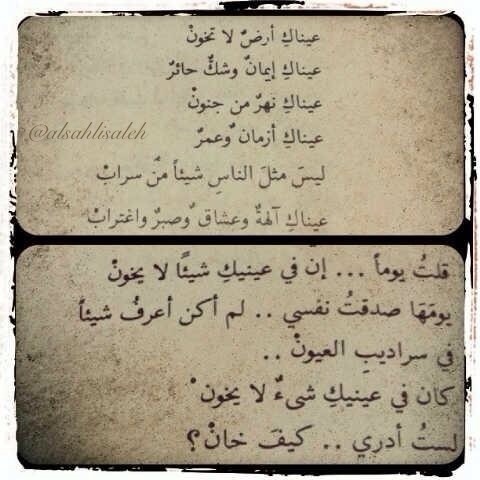 عيناكِ أرضٌ لا تخونْ
عيناكِ إيمانٌ وشكٌّ حائرٌ
عيناكِ نهرٌ من جنونْ
عيناكِ أزمانٌ وعمرٌ
@alsahlisaleh
ليسَ مثلَ الناسِ شيئاً منْ سرابْ
عيناكِ آلهةٌ وعشاقٌ وصبرٌ واغترابْ
قلتُ يوماً ... إن في عينيكِ شيئًا لا يخونْ
يومَهَا صدقتُ نفسي .. لم أكن أعرفُ شيئاً
في سراديبِ العيونْ ..
كان في عينيكِ شىءٌ لا يخونْ
لستُ أدري .. كيفَ خانْ؟